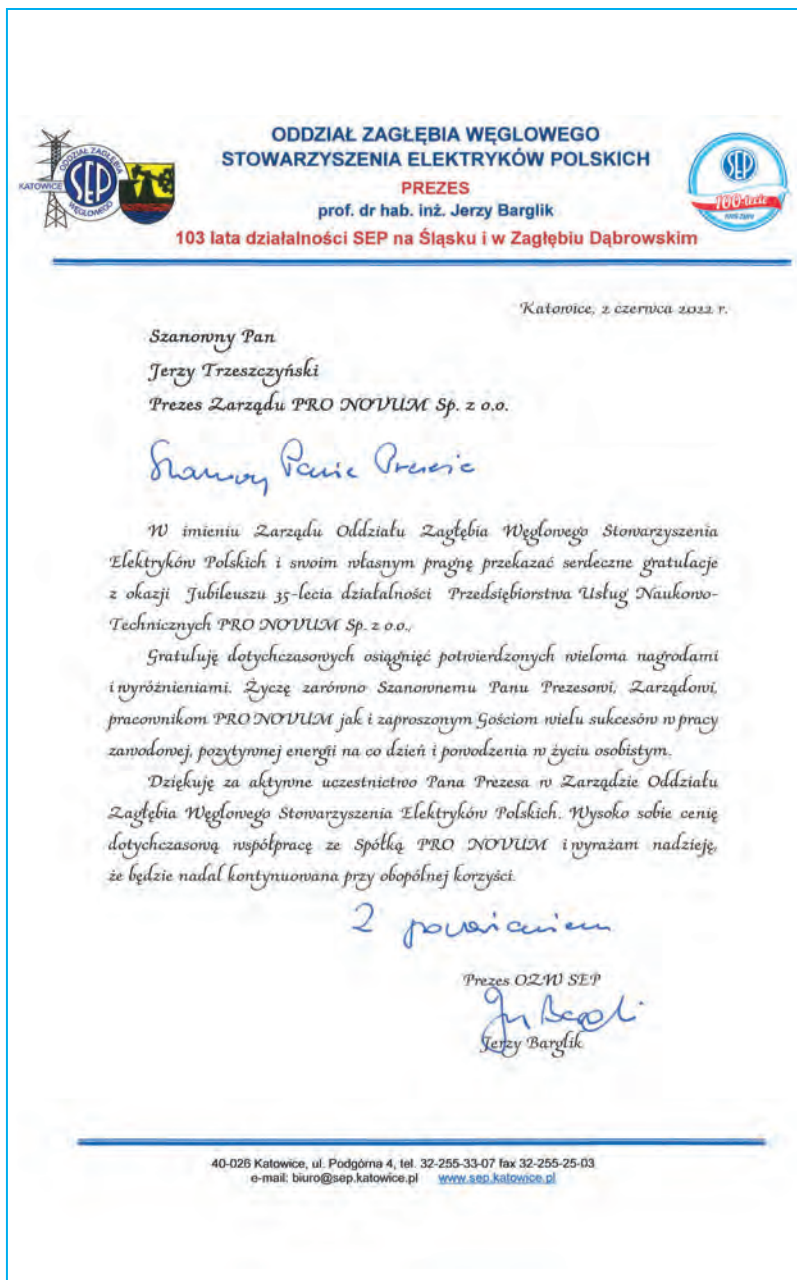 ODDZIAŁ ZAGŁĘBIA WĘGLOWEGO
STOWARZYSZENIA ELEKTRYKÓW POLSKICH
PREZES
prof. dr hab. inż. Jerzy Barglik
103 lata działalności SEP na Śląsku i w Zagłębiu Dąbrowskim
ODDZIAŁ ZAGŁĘBIA
KATOWICE
SEP
WĘGLOWEGO
SEP
100-lecie
Katowice, 2 czerwca 2022 r.
Szanowny Pan
Jerzy Trzeszczyński
Prezes Zarządu PRO NOVUM Sp. z o.o.
Szanowny Panie Prezesie
W imieniu Zarządu Oddziału Zagłębia Węglowego Stowarzyszenia
Elektryków Polskich i swoim własnym pragnę przekazać serdeczne gratulacje
z okazji Jubileuszu 35-lecia działalności Przedsiębiorstwa Usług Naukowo-
Technicznych PRO NOVUM Sp. z o.o.,
Gratuluję dotychczasowych osiągnięć potwierdzonych wieloma nagrodami
i wyróżnieniami. Życzę zarówno Szanownemu Panu Prezesowi, Zarządowi,
pracownikom PRO NOVUM jak i zaproszonym Gościom wielu sukcesów w pracy
zawodowej, pozytywnej energii na co dzień i powodzenia w życiu osobistym.
Dziękuję za aktywne uczestnictwo Pana Prezesa w Zarządzie Oddziału
Zagłębia Węglowego Stowarzyszenia Elektryków Polskich. Wysoko sobie cenię
dotychczasową współpracę ze Spółką PRO NOVUM i wyrażam nadzieję,
że będzie nadal kontynuowana przy obopólnej korzyści.
Z poważaniem
Prezes OZW SEP
Jerzy Barglik
40-026 Katowice, ul. Podgórna 4, tel. 32-255-33-07 fax 32-255-25-03
e-mail: biuro@sep.katowice.pl www.sep.katowice.pl